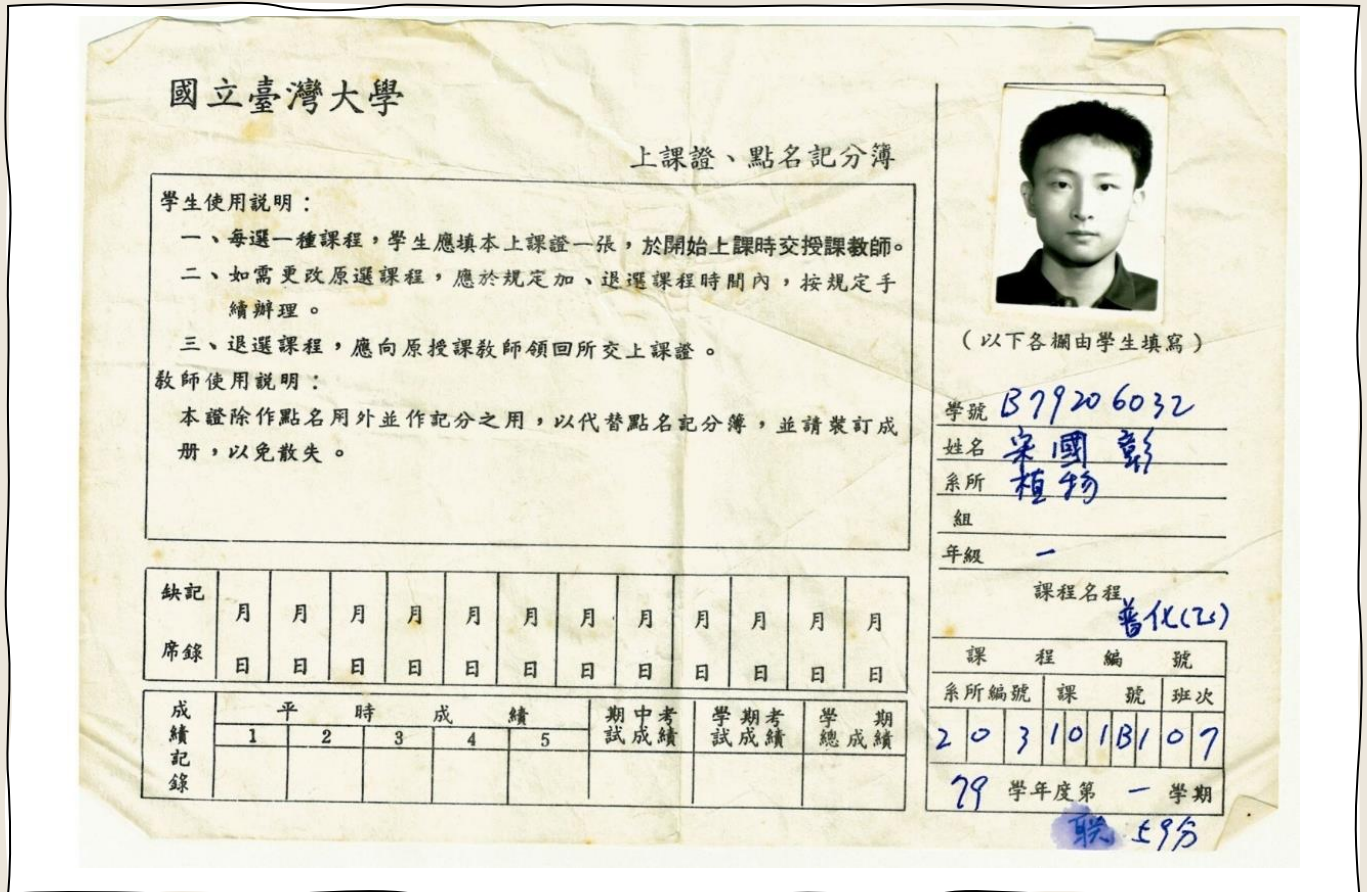 國立臺灣大學
上課證、點名記分簿
學生使用說明：
一、每選一種課程，學生應填本上課證一張，於開始上課時交授課教師。
二、如需更改原選課程，應於規定加、退選課程時間內，按規定手
續辦理。
三、退選課程，應向原授課教師領回所交上課證。
教師使用說明：
本證除作點名用外並作記分之用，以代替點名記分簿，並請裝訂成
册，以免散失。
缺席記錄
月 月 月 月 月 月 月 月 月 月 月 月
日 日 日 日 日 日 日 日 日 日 日 日
成績記錄
平時成績 期中考試成績 學期考試成績 學期總成績
1 2 3 4 5
（以下各欄由學生填寫）
學號 B79206032
姓名 宋國彰
系所 植物
組
年級 一
課程名程
普化(乙)
課程編號
系所編號 課號 班次
2 0 3 1 0 1 B 1 0 7
79 學年度第 一 學期